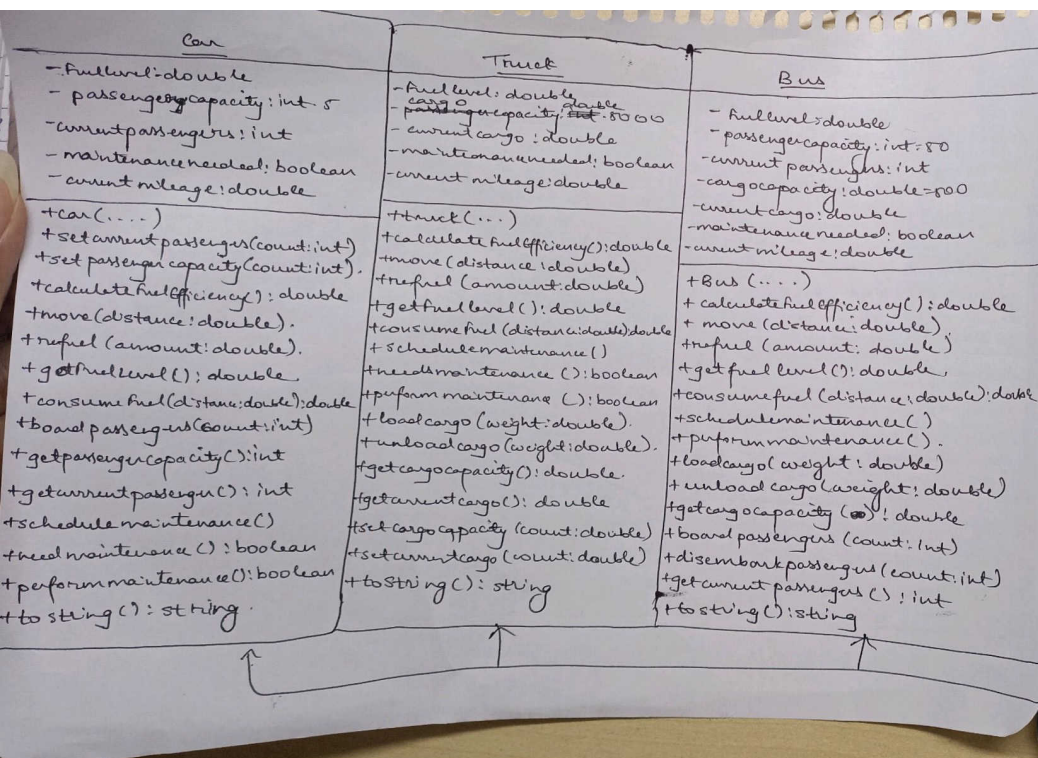 Car
- fuellevel: double
- passengercapacity: int. 5
- currentpassengers: int
- maintenanceneeded: boolean
- current mileage: double
+car(....)
+setcurrentpassengers(count:int)
+set passengercapacity(count:int).
+calculateFuelEfficiency(): double
+move(distance: double).
+refuel (amount: double).
+getfuelLevel(): double.
+consumeFuel(distance:double): double
+board passengers(count:int)
+getpassengercapacity():int
+getcurrentpassenger(): int
+schedulemaintenance()
+needmaintenance(): boolean
+performmaintenance(): boolean
+to string(): string.
Truck
- fuellevel: double
- cargo capacity: double. 8000
- currentcargo: double
- maintenanceneeded: boolean
- current mileage: double
+truck(...)
+calculateFuelEfficiency(): double
+move(distance: double)
+refuel (amount: double)
+getfuellevel(): double
+consumefuel (distance:double):double
+schedulemaintenance()
+needsmaintenance(): boolean
+perform maintenance(): boolean
+loadcargo (weight: double).
+unloadcargo (weight: double).
+getcargocapacity(): double.
+getcurrentcargo(): double
+set cargocapacity (count: double)
+setcurrentcargo (count: double)
+toString(): string
Bus
- fuellevel: double
- passengercapacity: int = 80
- current passengers: int
- cargocapacity: double = 500
- currentcargo: double
- maintenanceneeded: boolean
- current mileage: double
+Bus (....)
+ calculateFuelEfficiency(): double
+ move (distance: double),
+refuel (amount: double)
+getfuel level(): double,
+consumefuel (distance: double): double
+schedulemaintenance()
+performmaintenance().
+loadcargo(weight: double)
+unload cargo(weight: double)
+getcargocapacity (): double
+board passengers (count: int)
+disembarkpassengers (count: int)
+getcurrent passengers(): int
+to string(): string